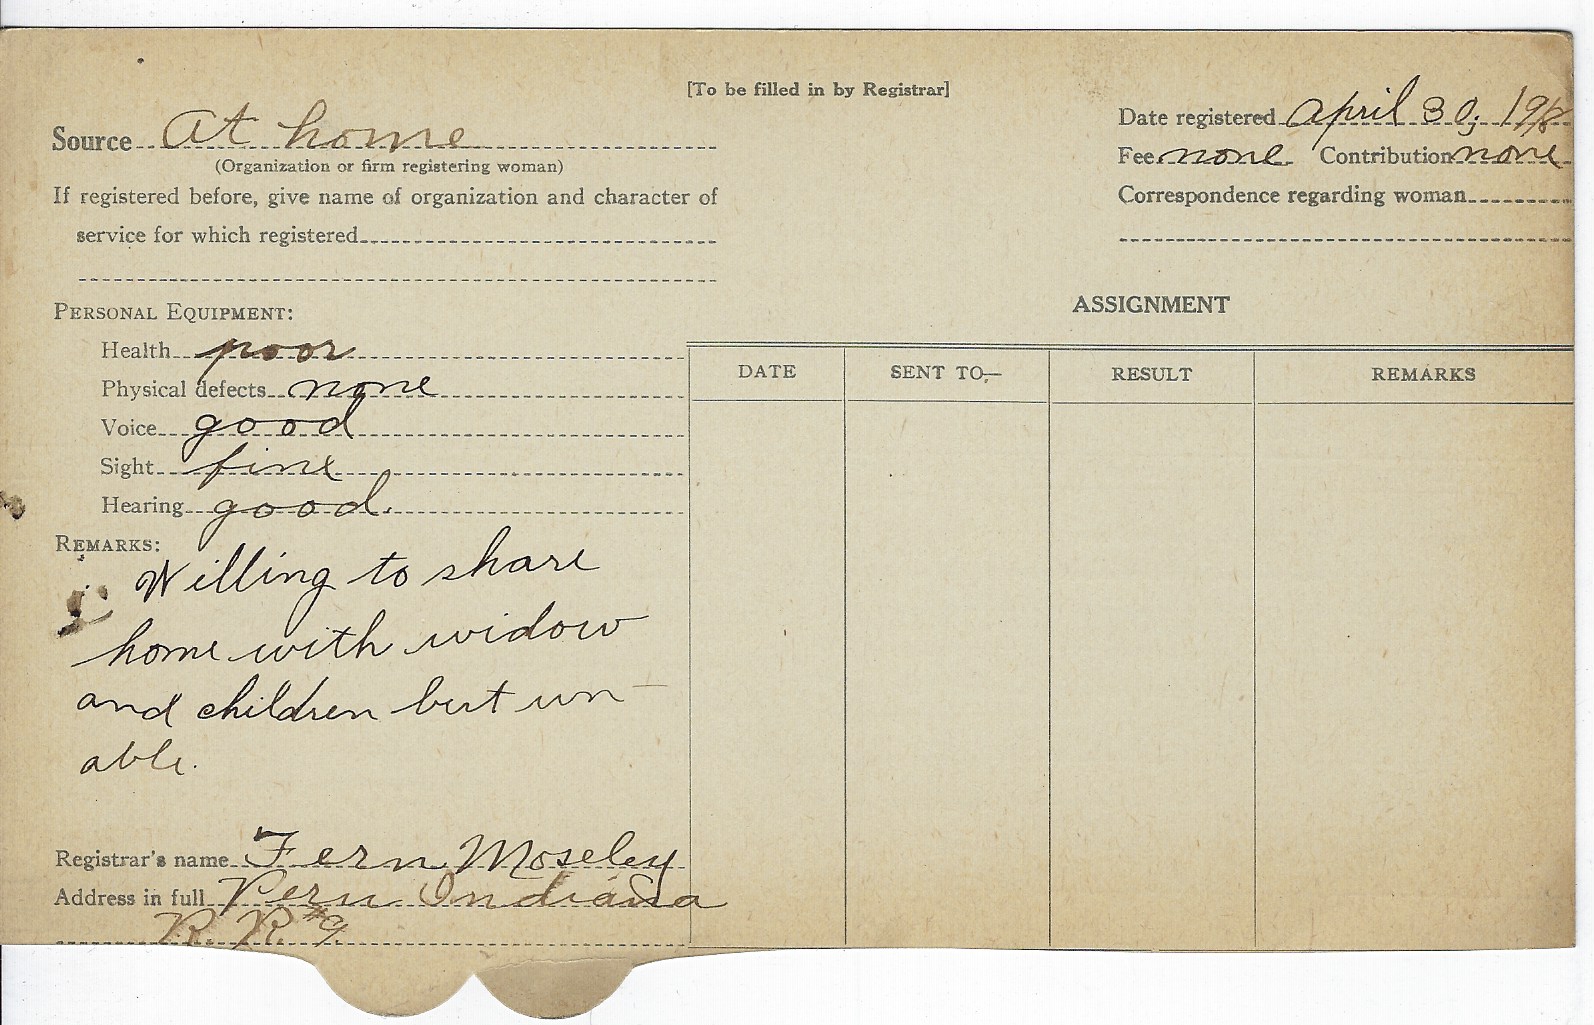 [To be filled in by Registrar]
Source At home
(Organization or firm registering woman)
If registered before, give name of organization and character of
service for which registered
Date registered April 30, 1918
Fee none Contribution none
Correspondence regarding woman
PERSONAL EQUIPMENT:
Health poor
Physical defects none
Voice good
Sight fine
Hearing good.
REMARKS:
Willing to share
home with widow
and children but un-
able.
Registrar's name Fern Moseley
Address in full Peru Indiana
R. R. #9.
ASSIGNMENT
DATE SENT TO— RESULT REMARKS